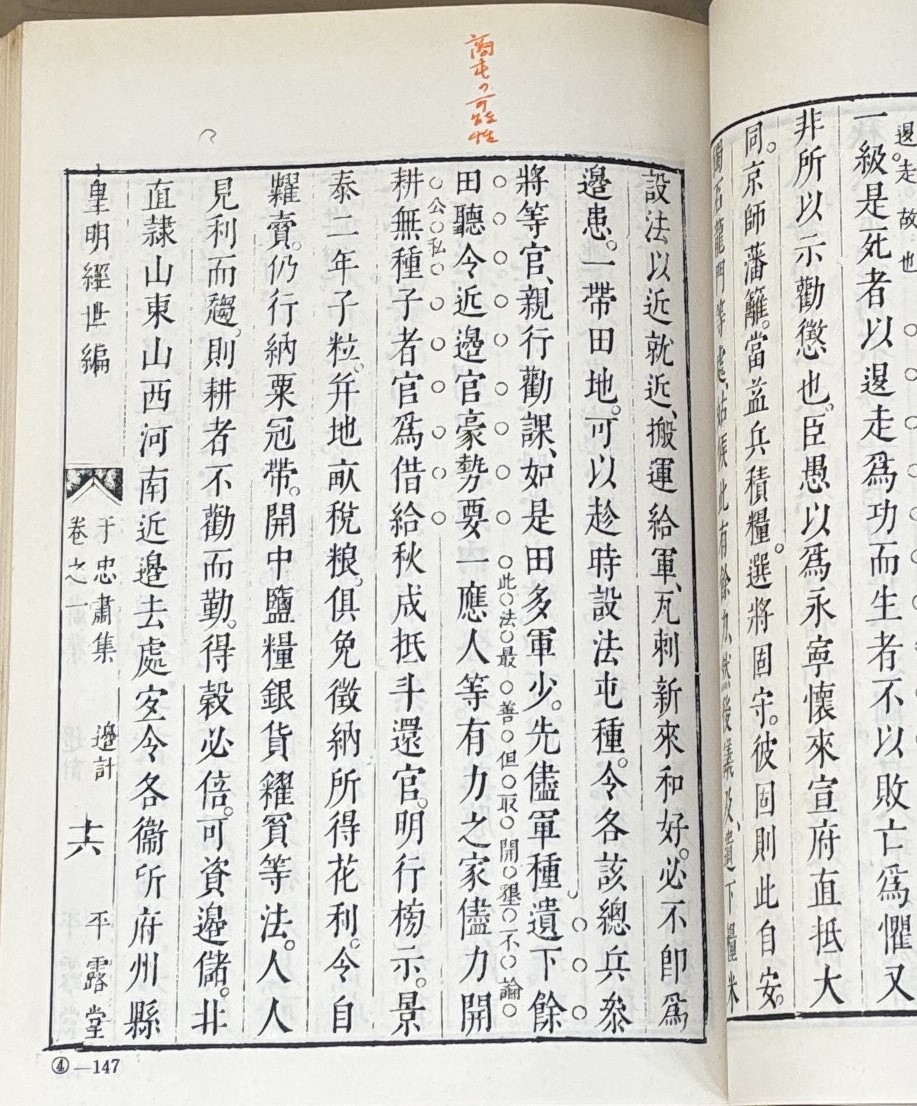 邉走 故也
一級是死者以邉走爲功而生者不以敗亡爲懼又
非所以示勸懲也。臣愚以爲永寧懷來宣府直抵大
同。京師藩籬。當益兵積糧。選將固守。彼固則此自安。
獨石龍門等處
商屯の可能性
設法以近就近、搬運給軍、瓦剌新來和好。必不卽爲
邊患。一帶田地。可以趁時設法屯種。令各該總兵叅
將等官、親行勸課、如是田多軍少。先儘軍種。遺下餘
此法最善但取開墾不論
田聽令近邉官豪勢要一應人等有力之家儘力開
公私
耕無種子者官爲借給秋成抵斗還官。明行榜示。景
泰二年子粒。幷地畝稅粮。俱免徵納所得花利。令自
糶賣。仍行納粟冠帶。開中鹽糧銀貨糴買等法。人人
見利而趨。則耕者不勸而勤。得穀必倍。可資邉儲。非
直隷山東山西河南近邉去處定令各衞所府州縣
皇明經世編
于忠肅集
卷之一
邉計
十六
平露堂
④—147